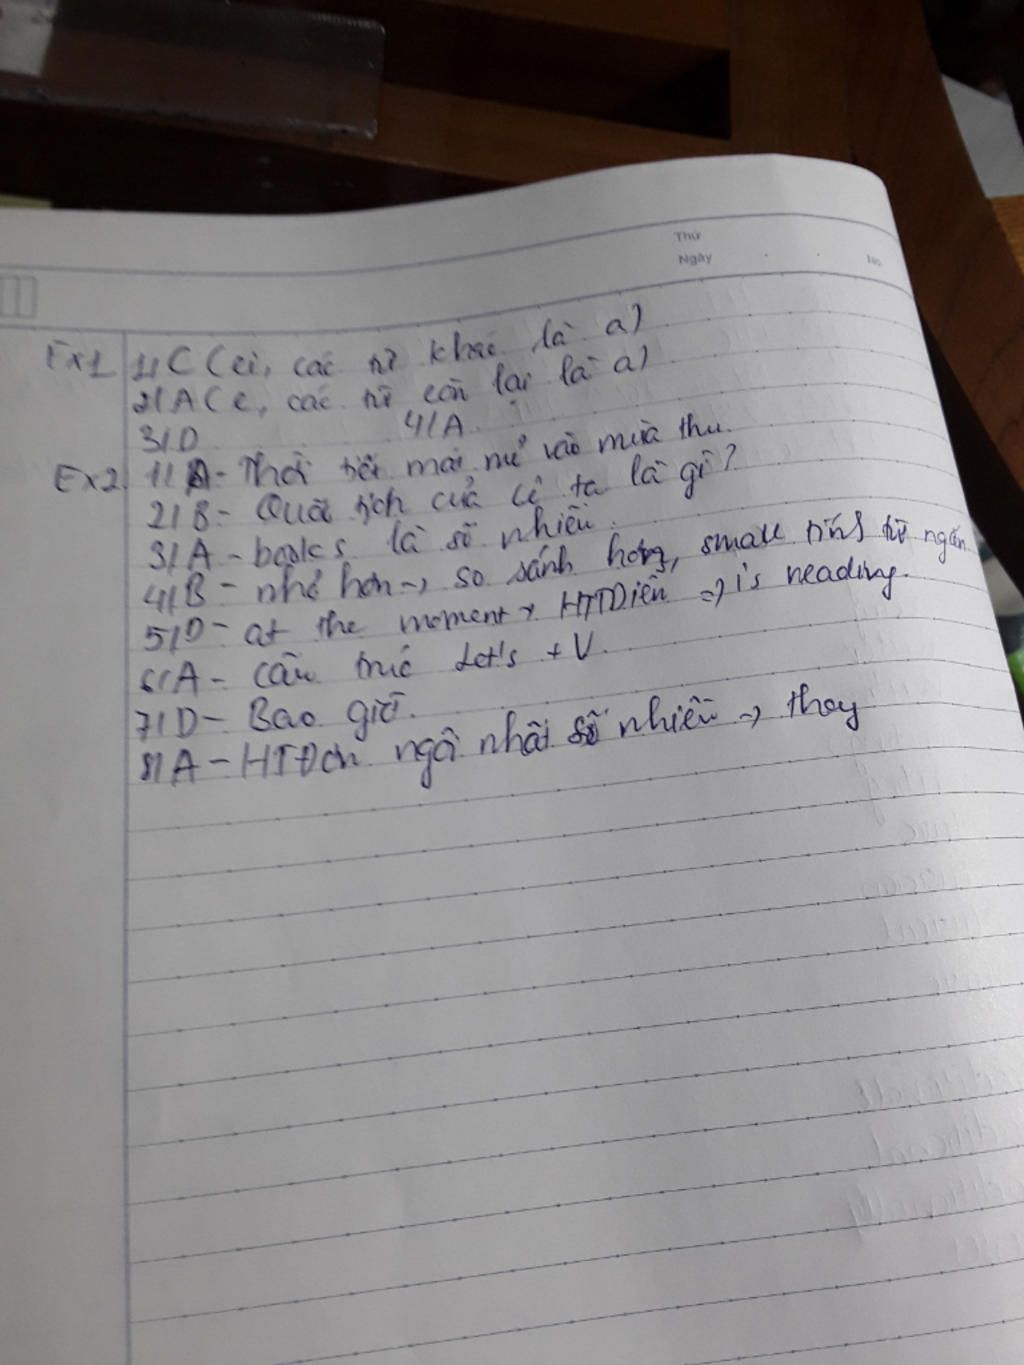 Thứ
Ngày
No.
Ex1 1/ C (ei, các từ khác là a)
2/ A (e, các từ còn lại là a)
3/ D 4/ A
Ex2 1/ A - Thời tiết mát mẻ vào mùa thu.
2/ B - Quốc tịch của cô ta là gì?
3/ A - books là số nhiều.
4/ B - nhỏ hơn → so sánh hơn, small tính từ ngắn
5/ D - at the moment → HTDiễn => is reading.
6/ A - cấu trúc Let's + V.
7/ D - Bao giờ.
8/ A - HTĐơn ngôi nhất số nhiều →